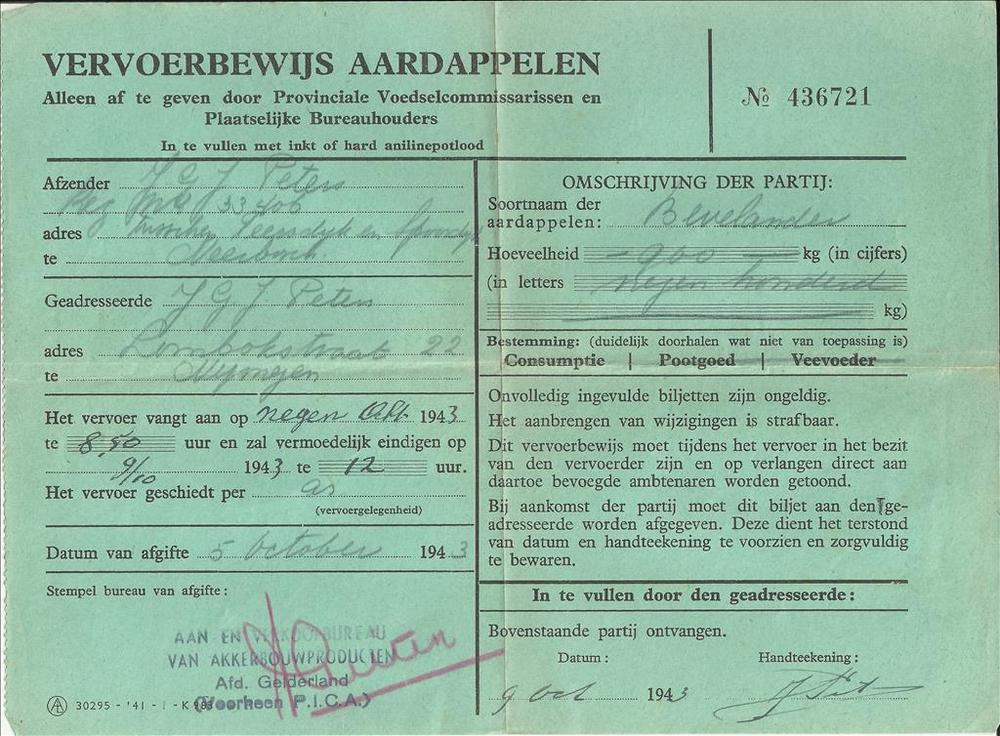 VERVOERBEWIJS AARDAPPELEN
Alleen af te geven door Provinciale Voedselcommissarissen en
Plaatselijke Bureauhouders
In te vullen met inkt of hard anilinepotlood
№ 436721
Afzender J G J Peters
Reg
adres
te
Geadresseerde J G J Peters
adres Lombokstraat 22
te Nijmegen
Het vervoer vangt aan op negen Oct 1943
te 8,50 uur en zal vermoedelijk eindigen op
9/10 1943 te 12 uur.
Het vervoer geschiedt per as
(vervoergelegenheid)
Datum van afgifte 5 October 1943
Stempel bureau van afgifte:
AAN EN VERKOOPBUREAU
VAN AKKERBOUWPRODUCTEN
Afd. Gelderland
(Voorheen P.I.C.A.)
30295 - '41 - I - K 983
OMSCHRIJVING DER PARTIJ:
Soortnaam der
aardappelen: Bevelander
Hoeveelheid - 900 - kg (in cijfers)
(in letters negen honderd
kg)
Bestemming: (duidelijk doorhalen wat niet van toepassing is)
Consumptie | Pootgoed | Veevoeder
Onvolledig ingevulde biljetten zijn ongeldig.
Het aanbrengen van wijzigingen is strafbaar.
Dit vervoerbewijs moet tijdens het vervoer in het bezit
van den vervoerder zijn en op verlangen direct aan
daartoe bevoegde ambtenaren worden getoond.
Bij aankomst der partij moet dit biljet aan den ge-
adresseerde worden afgegeven. Deze dient het terstond
van datum en handteekening te voorzien en zorgvuldig
te bewaren.
In te vullen door den geadresseerde:
Bovenstaande partij ontvangen.
Datum: Handteekening:
9 Oct 1943